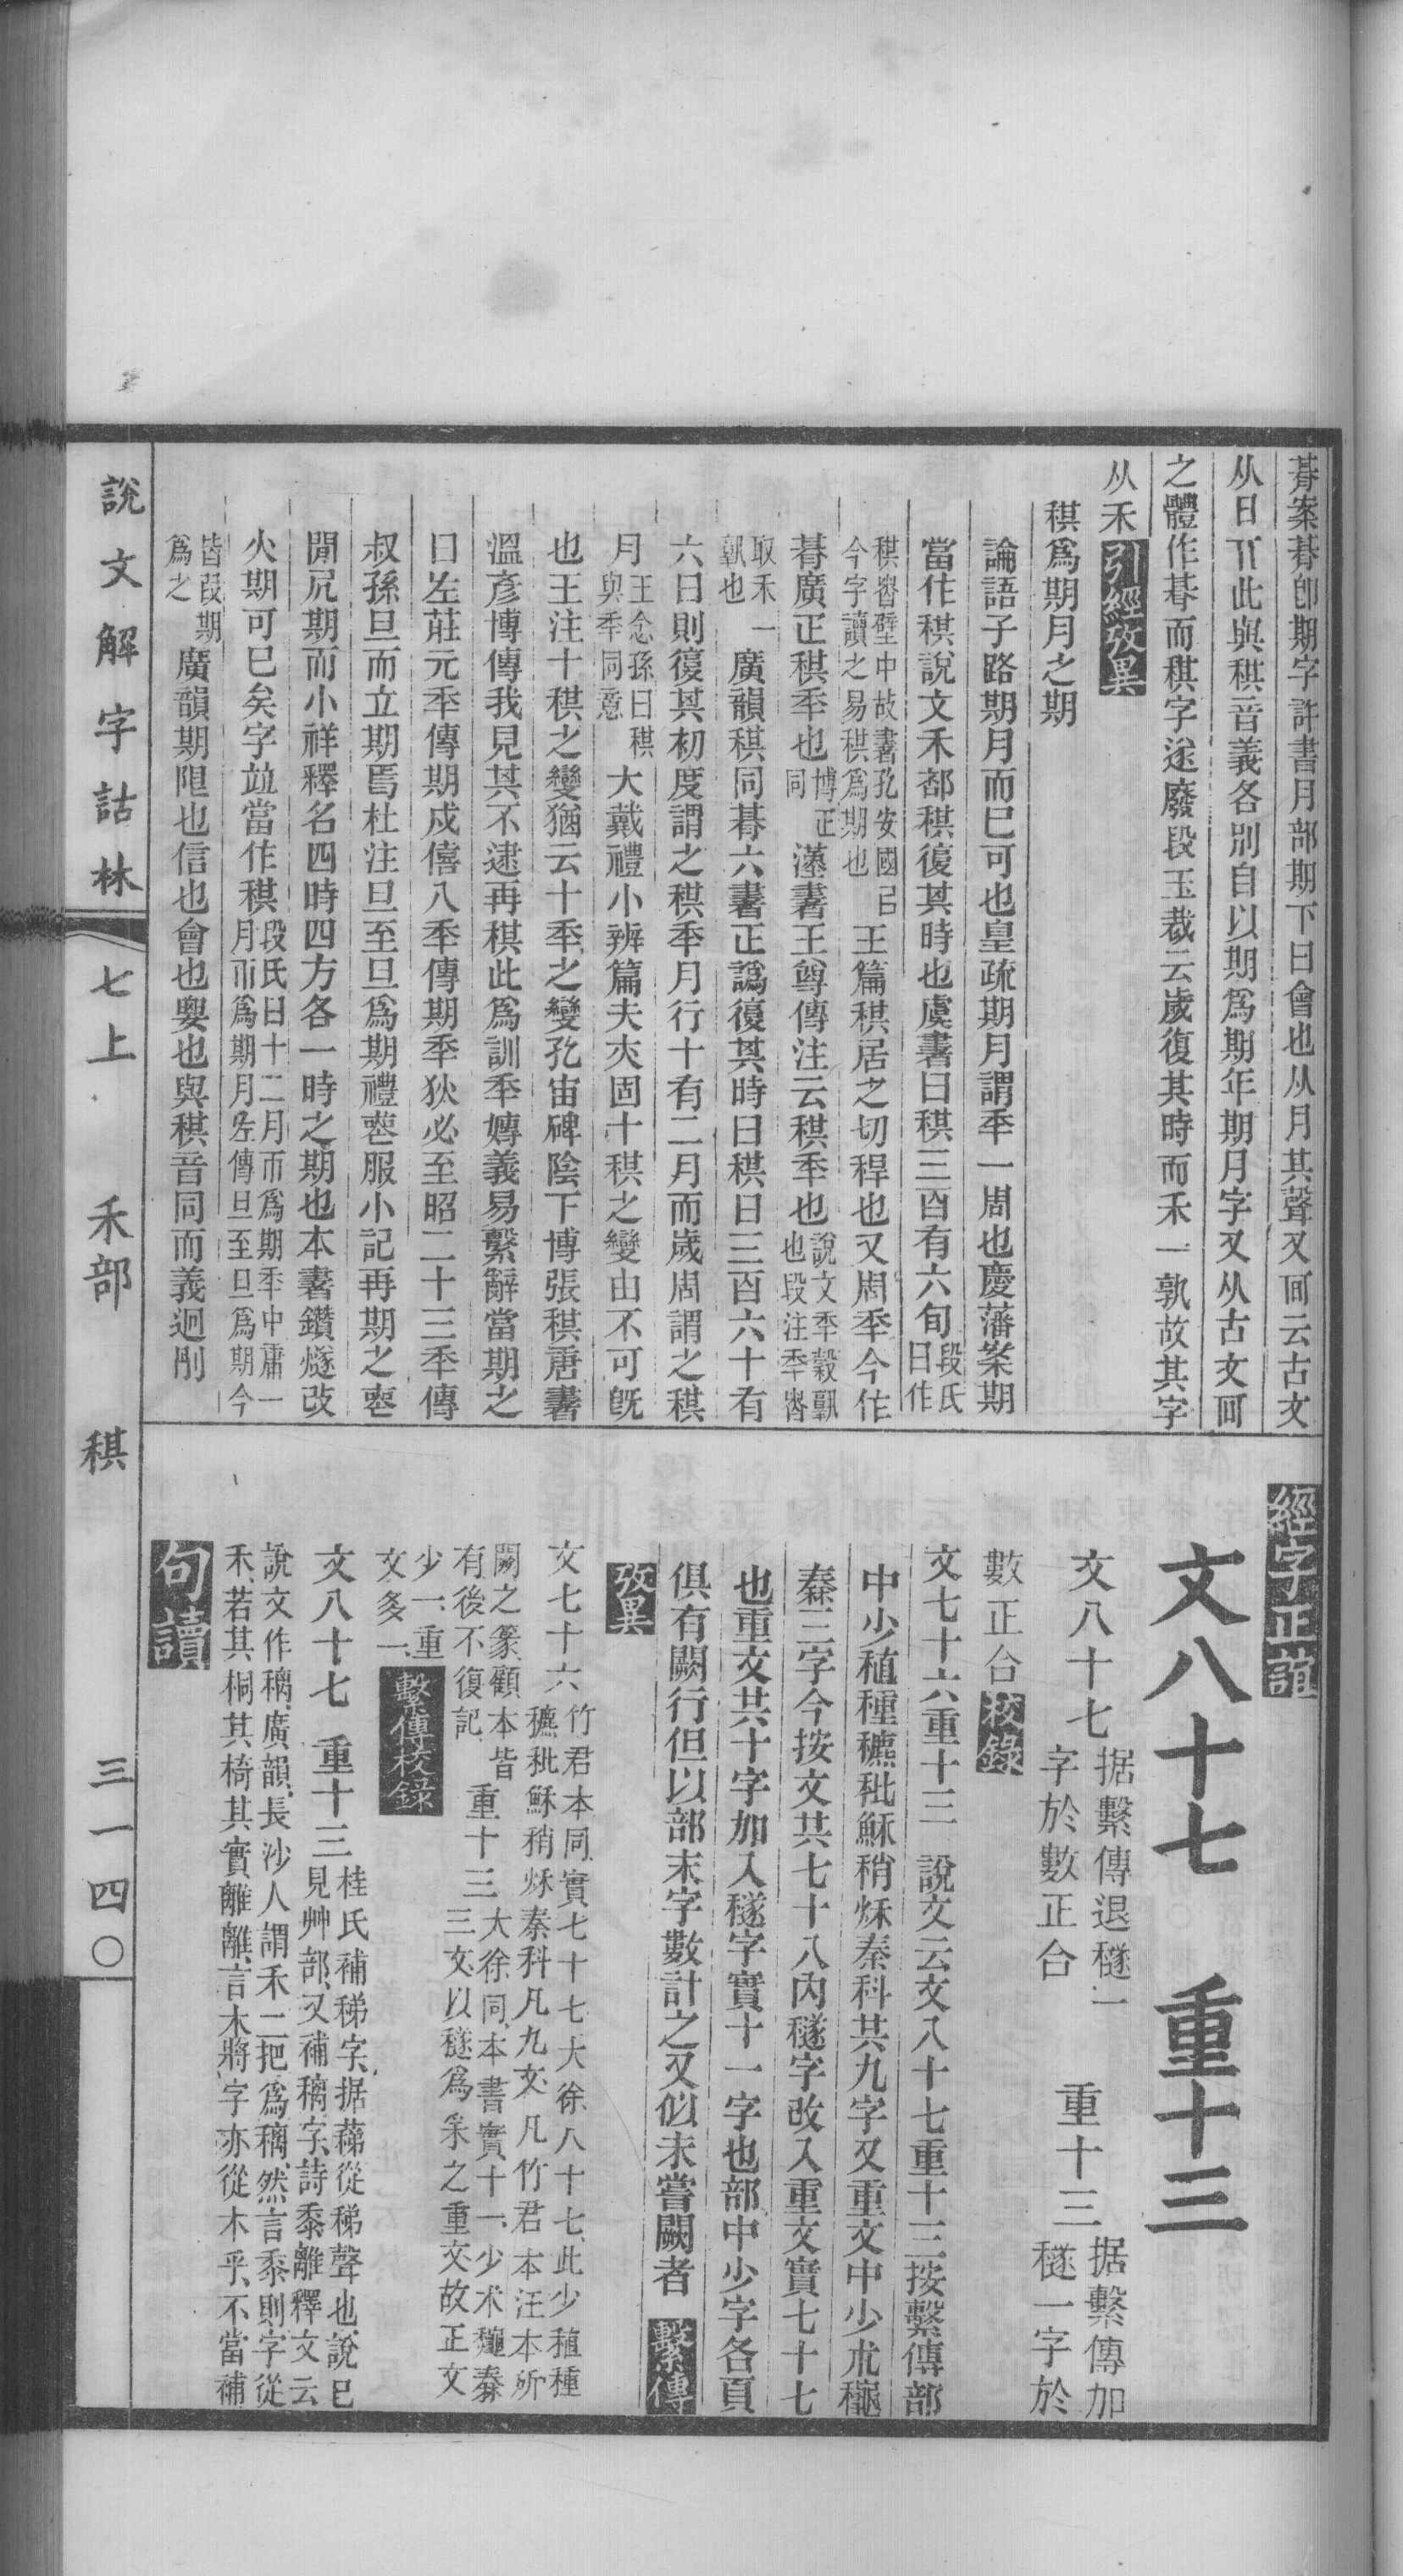 朞案朞卽期字許書月部期下曰會也从月其聲又𠀤云古文
从日丌此與稘音義各別自以期為期年期月字又从古文𠀤
之體作朞而稘字遂廢段玉裁云歲復其時而禾一孰故其字
从禾引經攷異
稘爲期月之期
論語子路期月而已可也皇疏期月謂秊一周也慶藩案期
當作稘說文禾部稘復其時也虞書曰稘三百有六旬段氏曰作
稘者壁中故書孔安國㠯今字讀之易稘爲期也玉篇稘居之切稈也又周秊今作
朞廣疋稘秊也博疋同漢書王莽傳注云稘秊也說文秊穀孰也段注秊者
取禾一孰也廣韻稘同朞六書正譌復其時曰稘日三百六十有
六日則復其初度謂之稘秊月行十有二月而歲周謂之稘
月王念孫曰稘與秊同意大戴禮小辨篇夫亦固十稘之變由不可旣
也王注十稘之變猶云十秊之變孔宙碑陰下博張稘唐書
溫彦博傳我見其不逮再稘此爲訓秊塼義易繫辭當期之
日左莊元秊傳期戍僖八秊傳期秊狄必至昭二十三秊傳
叔孫旦而立期焉杜注旦至旦爲期禮喪服小記再期之喪
閒尻期而小祥釋名四時四方各一時之期也本書鑽燧改
火期可已矣字竝當作稘段氏曰十二月而爲期秊中庸一月而爲期月左傳旦至旦爲期今
皆叚期爲之廣韻期限也信也會也要也與稘音同而義迥別
經字正誼
文八十七　重十三
文八十七据繫傳退穟一字於數正合　重十三据繫傳加穟一字於
數正合校錄
文七十六重十三　說文云文八十七重十三按繫傳部
中少稙種穮秕穌稍秌秦科共九字又重文中少朮穐
秦三字今按文共七十八內穟字改入重文實七十七
也重文共十字加入穟字實十一字也部中少字各頁
俱有闕行但以部末字數計之又似未嘗闕者繫傳
攷異
文七十六竹君本同實七十七大徐八十七此少稙種穮秕穌稍秌秦科凡九文凡竹君本汪本所
闕之篆顧本皆有後不復記重十三大徐同本書實十一少朮穐秦三文以穟爲采之重文故正文
少一重文多一繫傳校錄
文八十七　重十三桂氏補稊字据䔑從稊聲也說已見艸部又補穲字詩黍離釋文云
說文作穲廣韻長沙人謂禾二把爲穲然言黍則字從禾若其桐其椅其實離離言木將字亦從木乎不當補
句讀
說文解字詁林　七上　禾部　稘　三一四〇